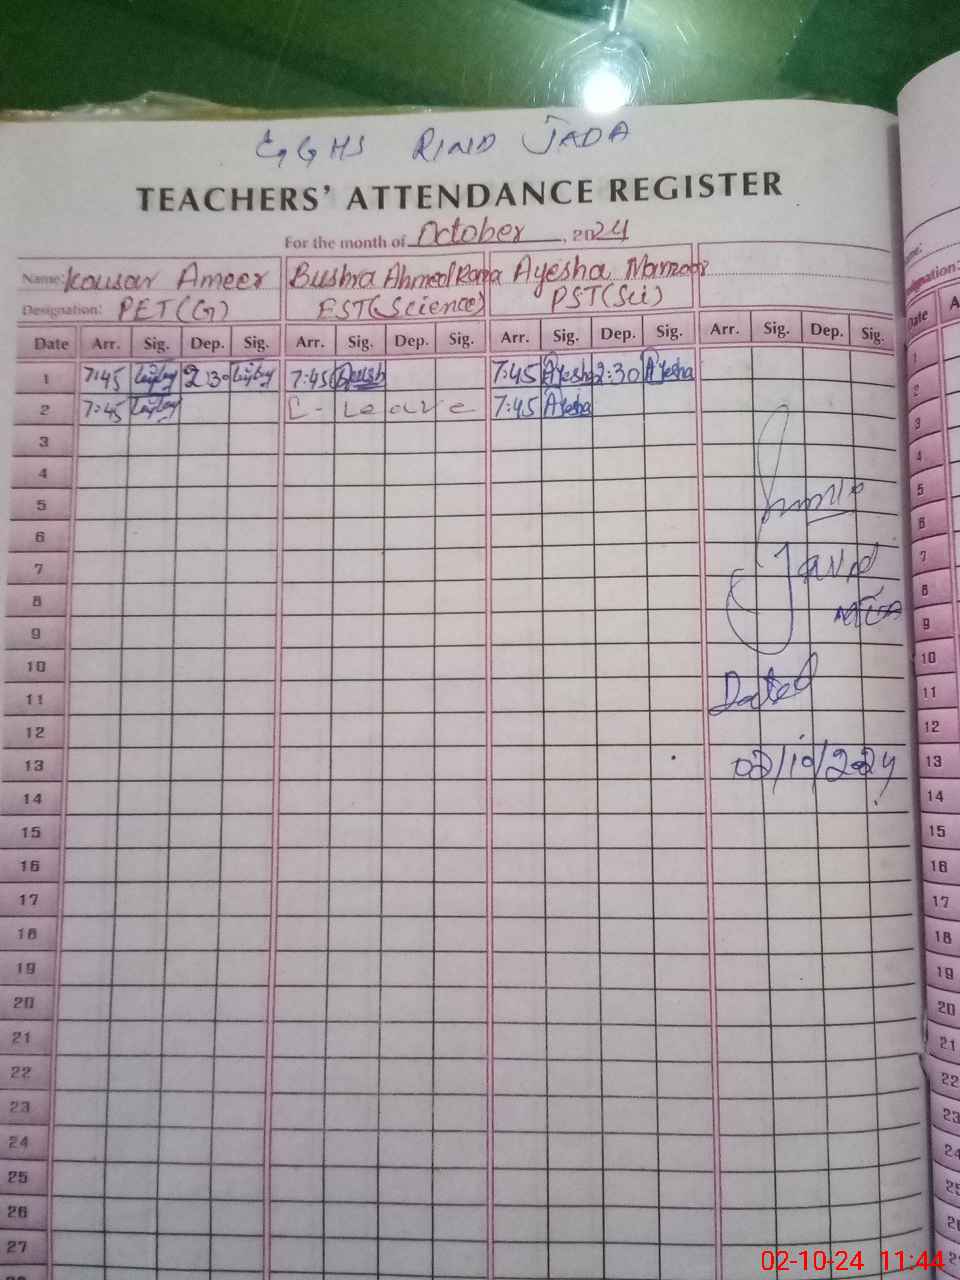 GGHS RIND JADA
TEACHERS' ATTENDANCE REGISTER
For the month of October, 2024
Name: Kousar Ameer Bushra Ahmed Rana Ayesha Manzoor
Designation: PET(G) EST(Science) PST(Sci)
Date Arr. Sig. Dep. Sig. Arr. Sig. Dep. Sig. Arr. Sig. Dep. Sig. Arr. Sig. Dep. Sig. Date
1 7:45 2:30 7:45 Bush 7:45 Ayesha 2:30 Ayesha 1
2 7:45 C-Leave 7:45 Ayesha 2
3 3
4 4
5 5
6 6
7 Javed 7
8 8
9 9
10 10
11 Dated 11
12 12
13 02/10/2024 13
14 14
15 15
16 16
17 17
18 18
19 19
20 20
21 21
22 22
23 23
24 24
25 25
26
27
02-10-24 11:44